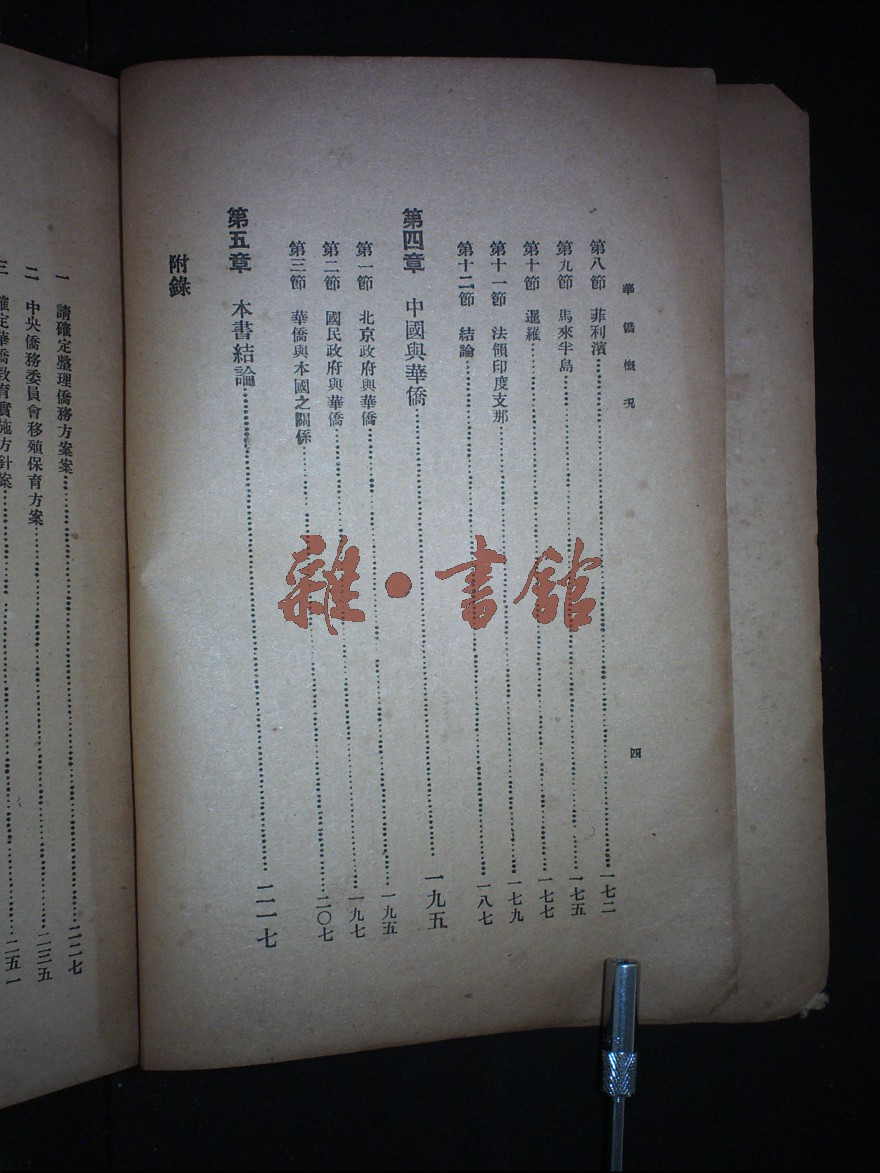 華僑概況
四
第八節 菲利濱……一七二
第九節 馬來半島……一七五
第十節 暹羅……一七七
第十一節 法領印度支那……一七九
第十二節 結論……一八七
第四章 中國與華僑……一九五
第一節 北京政府與華僑……一九五
第二節 國民政府與華僑……一九七
第三節 華僑與本國之關係……二〇七
第五章 本書結論……二一七
附錄
一 請確定整理僑務方案案……二二七
二 中央僑務委員會移殖保育方案……二三五
三 確定華僑教育實施方針案……二五一
雜·書館